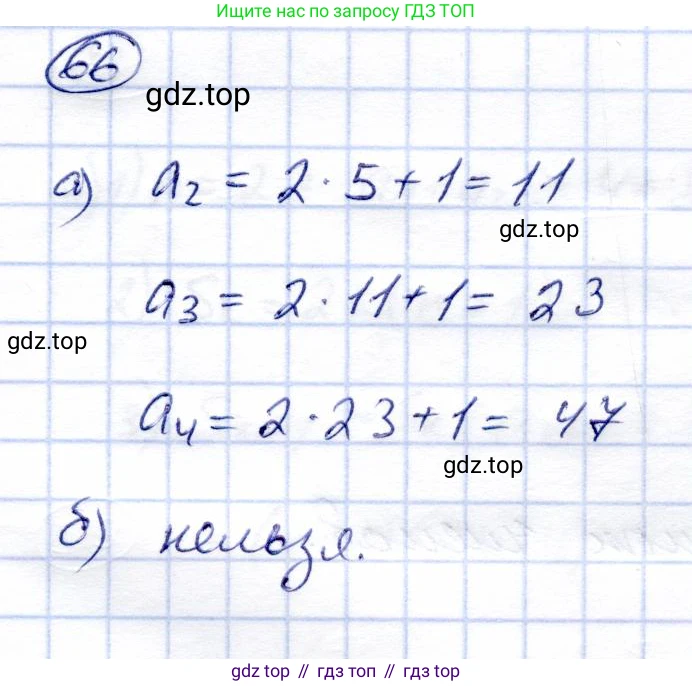 Ищите нас по запросу ГДЗ ТОП
66
gdz.top
а) a₂ = 2 · 5 + 1 = 11
gdz.top
a₃ = 2 · 11 + 1 = 23
gdz.top
a₄ = 2 · 23 + 1 = 47
gdz.top
б) нельзя.
gdz top // гдз топ // gdz.top